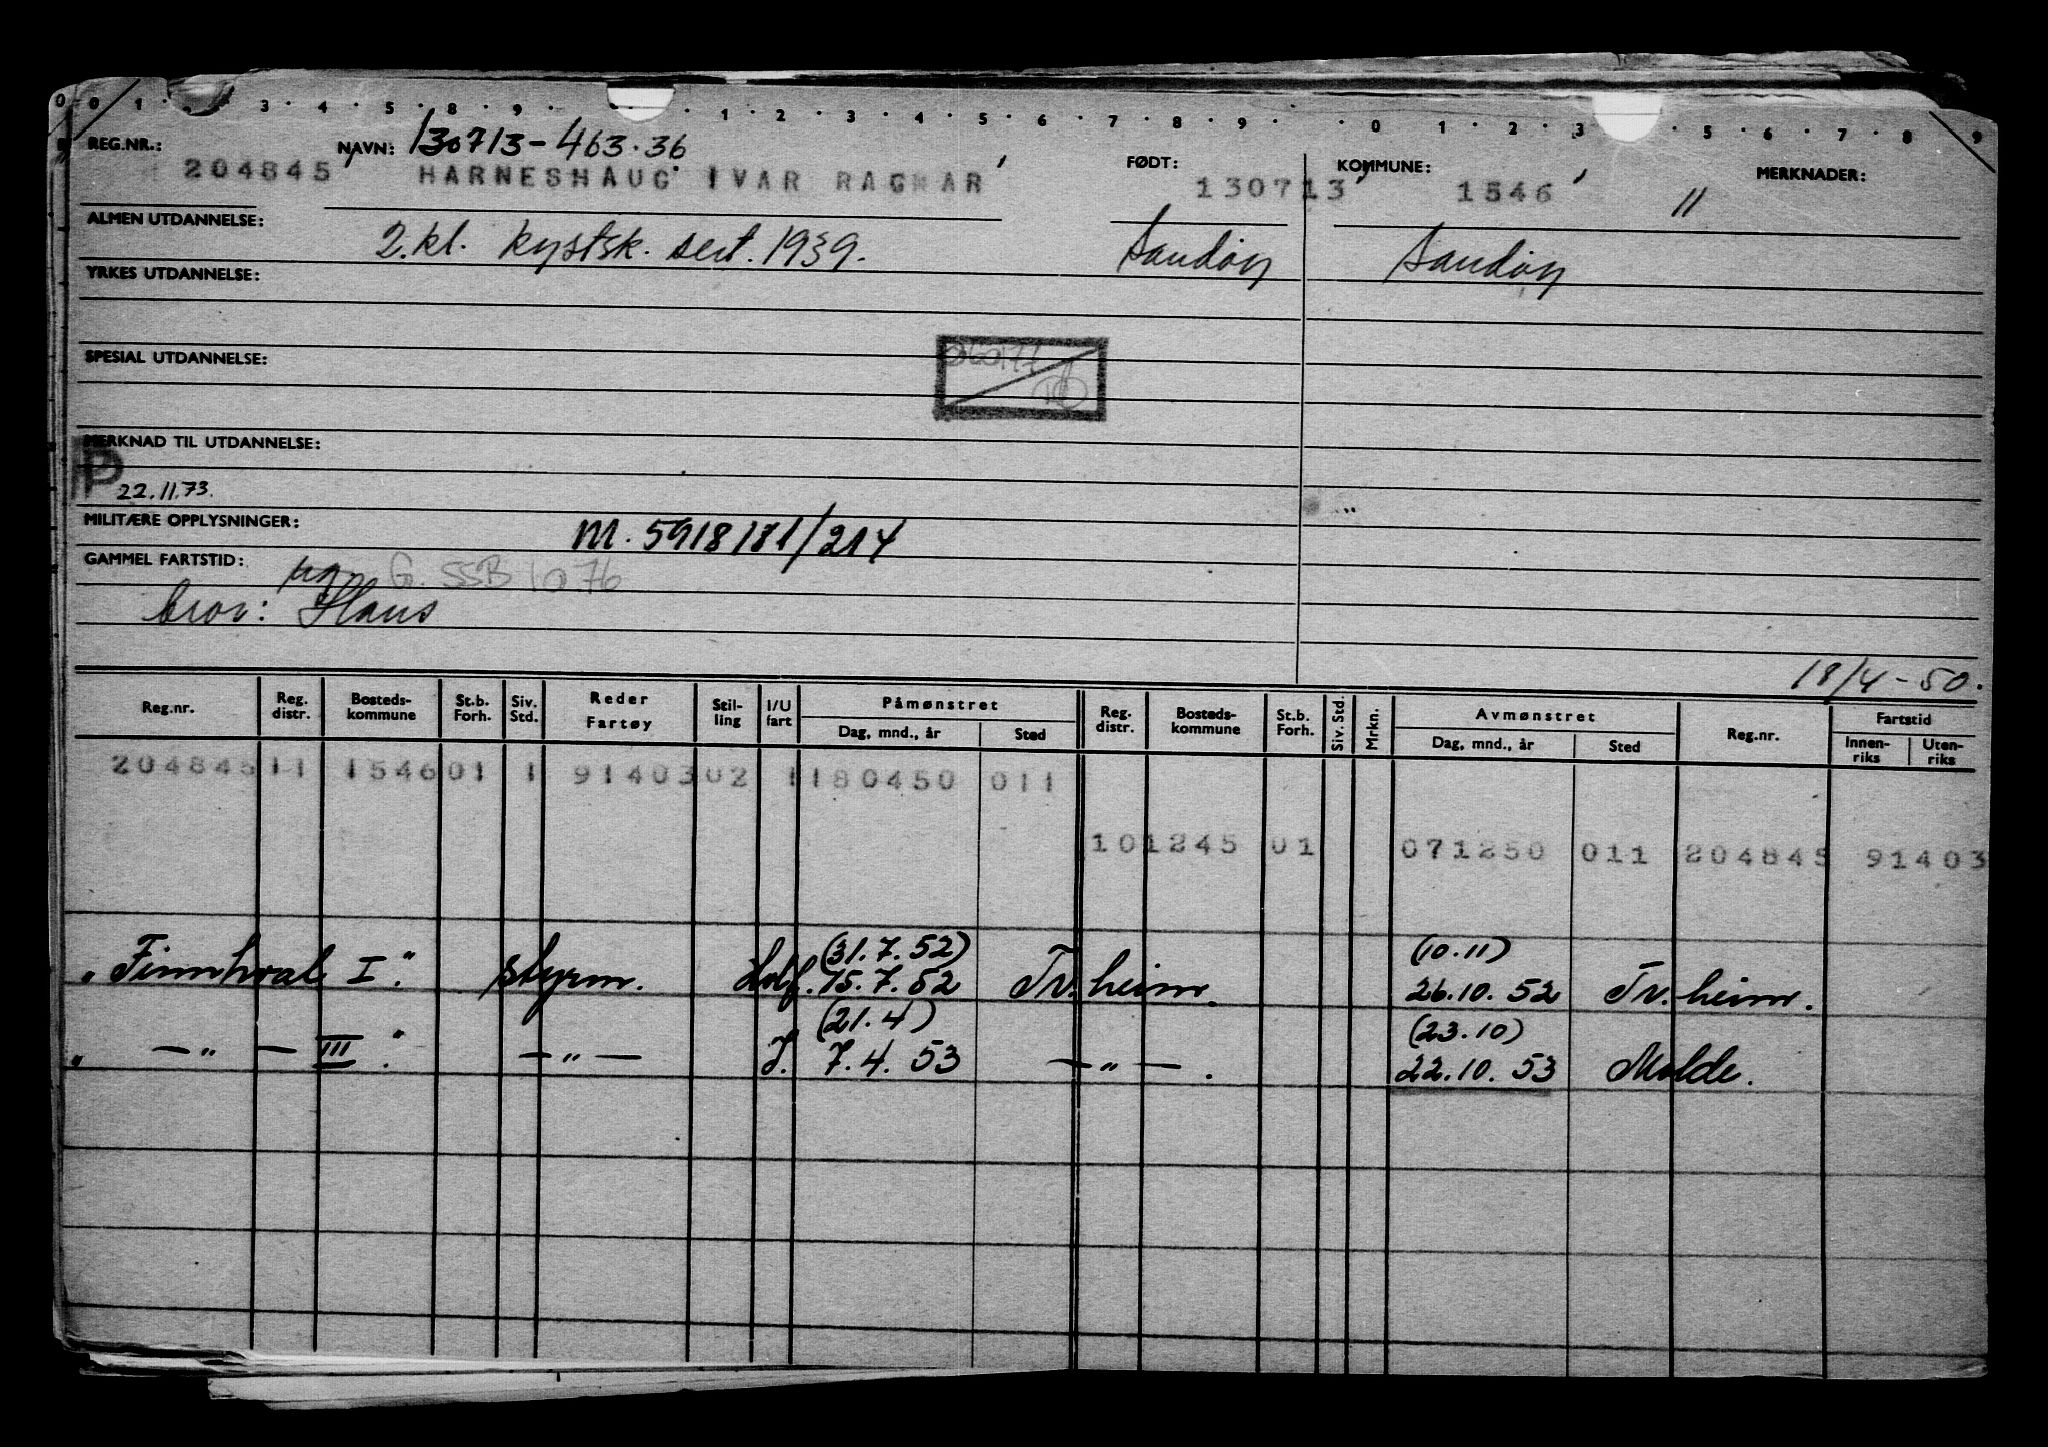 0 0 1 3 4 5 8 9 1 2 3 4 5 6 7 8 9 0 1 2 3 5 6 7 8 9
REG.NR.: NAVN: 130713-463.36 FØDT: KOMMUNE: MERKNADER:
204845 HARNESHAUG IVAR RAGNAR 130713 1546 "
ALMEN UTDANNELSE: 2.kl. kystsk. sert. 1939. Sandøy Sandøy
YRKES UTDANNELSE:
SPESIAL UTDANNELSE:
MERKNAD TIL UTDANNELSE:
P 22.11.73.
MILITÆRE OPPLYSNINGER: M. 5918181/214
GAMMEL FARTSTID: G. SSB 1076
bror: Hans
18/4-50.
Reg.nr. Reg. distr. Bosteds-kommune St.b. Forh. Siv. Std. Reder Fartøy Stil-ling I/U fart Påmønstret Dag, mnd., år Sted Reg. distr. Bosteds-kommune St.b. Forh. Siv. Std. Mrkn. Avmønstret Dag, mnd., år Sted Reg.nr. Fartstid Innen-riks Uten-riks
204845 11 1546 01 1 91403 02 1 180450 011
10 1245 01 071250 011 204845 91403
(31.7.52) (10.11)
"Finnhval I". styrm. 15.7.52 Tr.heim. 26.10.52 Tr.heim.
(21.4) (23.10)
" —"— III". —"— I. 7.4.53 —"—. 22.10.53 Molde.